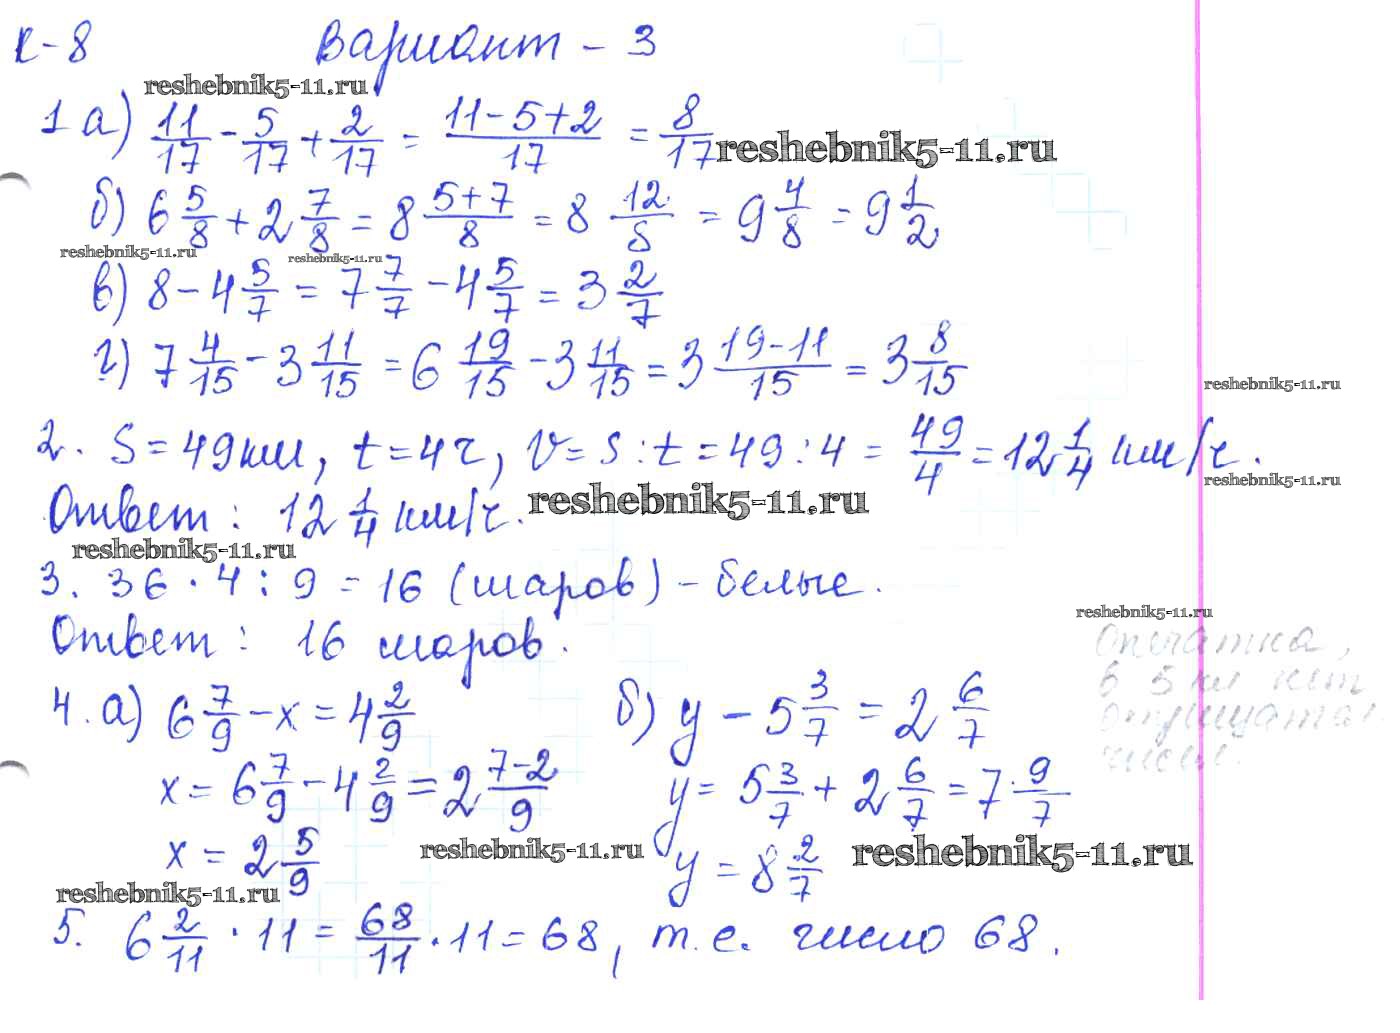 К-8 Вариант - 3
reshebnik5-11.ru
1 а) 11/17 - 5/17 + 2/17 = (11-5+2)/17 = 8/17 reshebnik5-11.ru
б) 6 5/8 + 2 7/8 = 8 (5+7)/8 = 8 12/8 = 9 4/8 = 9 1/2
reshebnik5-11.ru reshebnik5-11.ru
в) 8 - 4 5/7 = 7 7/7 - 4 5/7 = 3 2/7
г) 7 4/15 - 3 11/15 = 6 19/15 - 3 11/15 = 3 (19-11)/15 = 3 8/15
reshebnik5-11.ru
2. S = 49 км, t = 4 ч, V = s : t = 49 : 4 = 49/4 = 12 1/4 км/ч.
reshebnik5-11.ru
Ответ: 12 1/4 км/ч. reshebnik5-11.ru
reshebnik5-11.ru
3. 36 · 4 : 9 = 16 (шаров) - белые.
reshebnik5-11.ru
Ответ: 16 шаров.
Опечатка,
в 5 кл нет
отрицател.
чисел.
4. а) 6 7/9 - x = 4 2/9 б) y - 5 3/7 = 2 6/7
x = 6 7/9 - 4 2/9 = 2 (7-2)/9 y = 5 3/7 + 2 6/7 = 7 9/7
x = 2 5/9 reshebnik5-11.ru y = 8 2/7 reshebnik5-11.ru
reshebnik5-11.ru
5. 6 2/11 · 11 = 68/11 · 11 = 68, т.е. число 68.